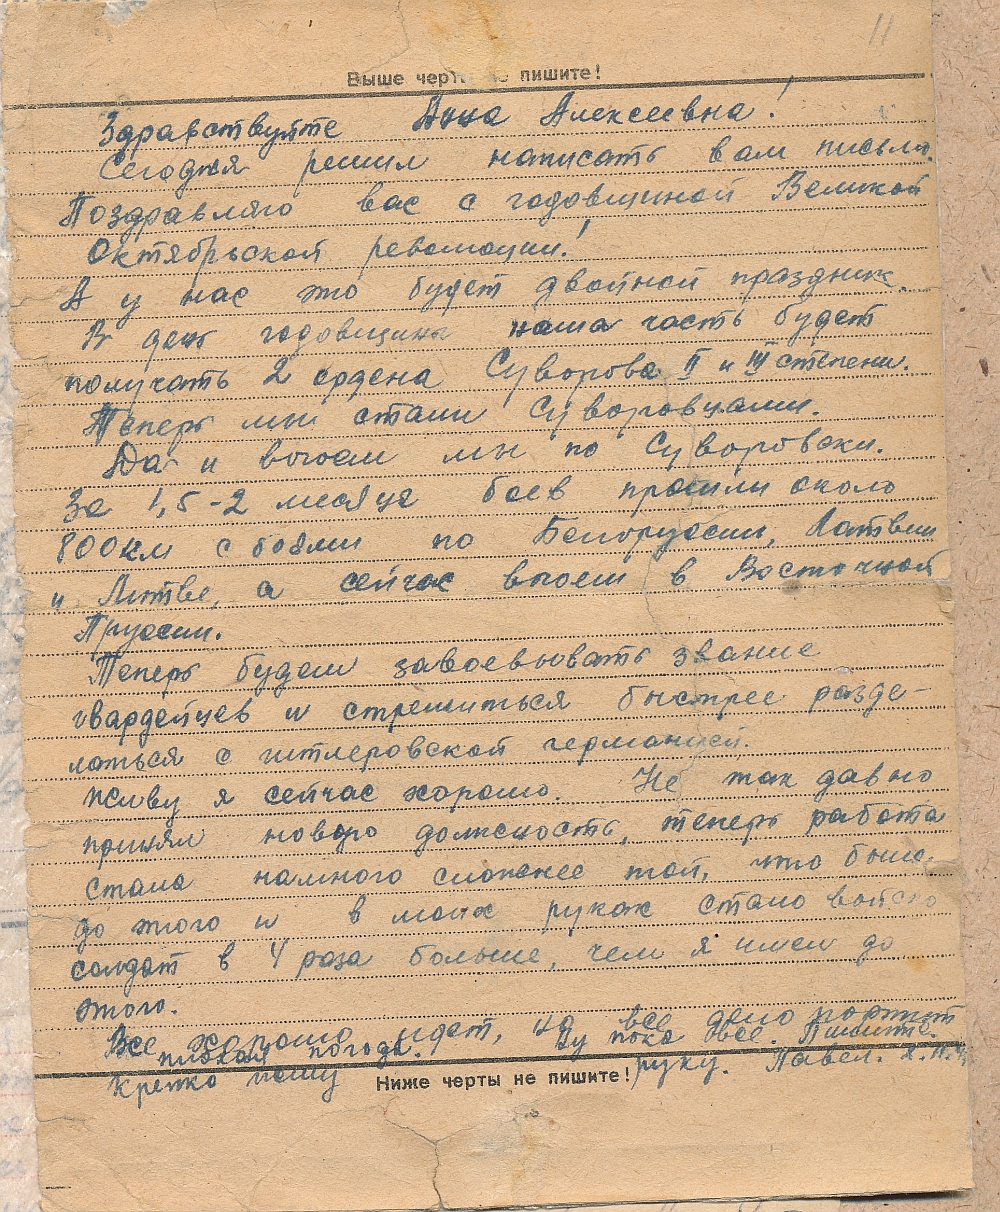 11
Выше черты не пишите!
Здравствуйте Анна Алексеевна!
Сегодня решил написать вам письмо.
Поздравляю вас с годовщиной Великой
Октябрьской революции!
А у нас это будет двойной праздник.
В день годовщины наша часть будет
получать 2 ордена Суворова II и III степени.
Теперь мы стали Суворовцами.
Да и воюем мы по Суворовски.
За 1,5-2 месяца боев прошли около
800 км с боями по Белоруссии, Латвии
и Литве, а сейчас воюем в Восточной
Пруссии.
Теперь будем завоевывать звание
гвардейцев и стремиться быстрее разде-
латься с гитлеровской германией.
Живу я сейчас хорошо. Не так давно
принял новую должность, теперь работа
стала намного сложнее той, что была
до этого и в моих руках стало войско
солдат в 4 раза больше, чем я имел до
этого.
Все хорошо идет, но все дело портит
плохая погода. Ну пока все. Пишите.
Крепко жму руку. Павел.
Ниже черты не пишите!